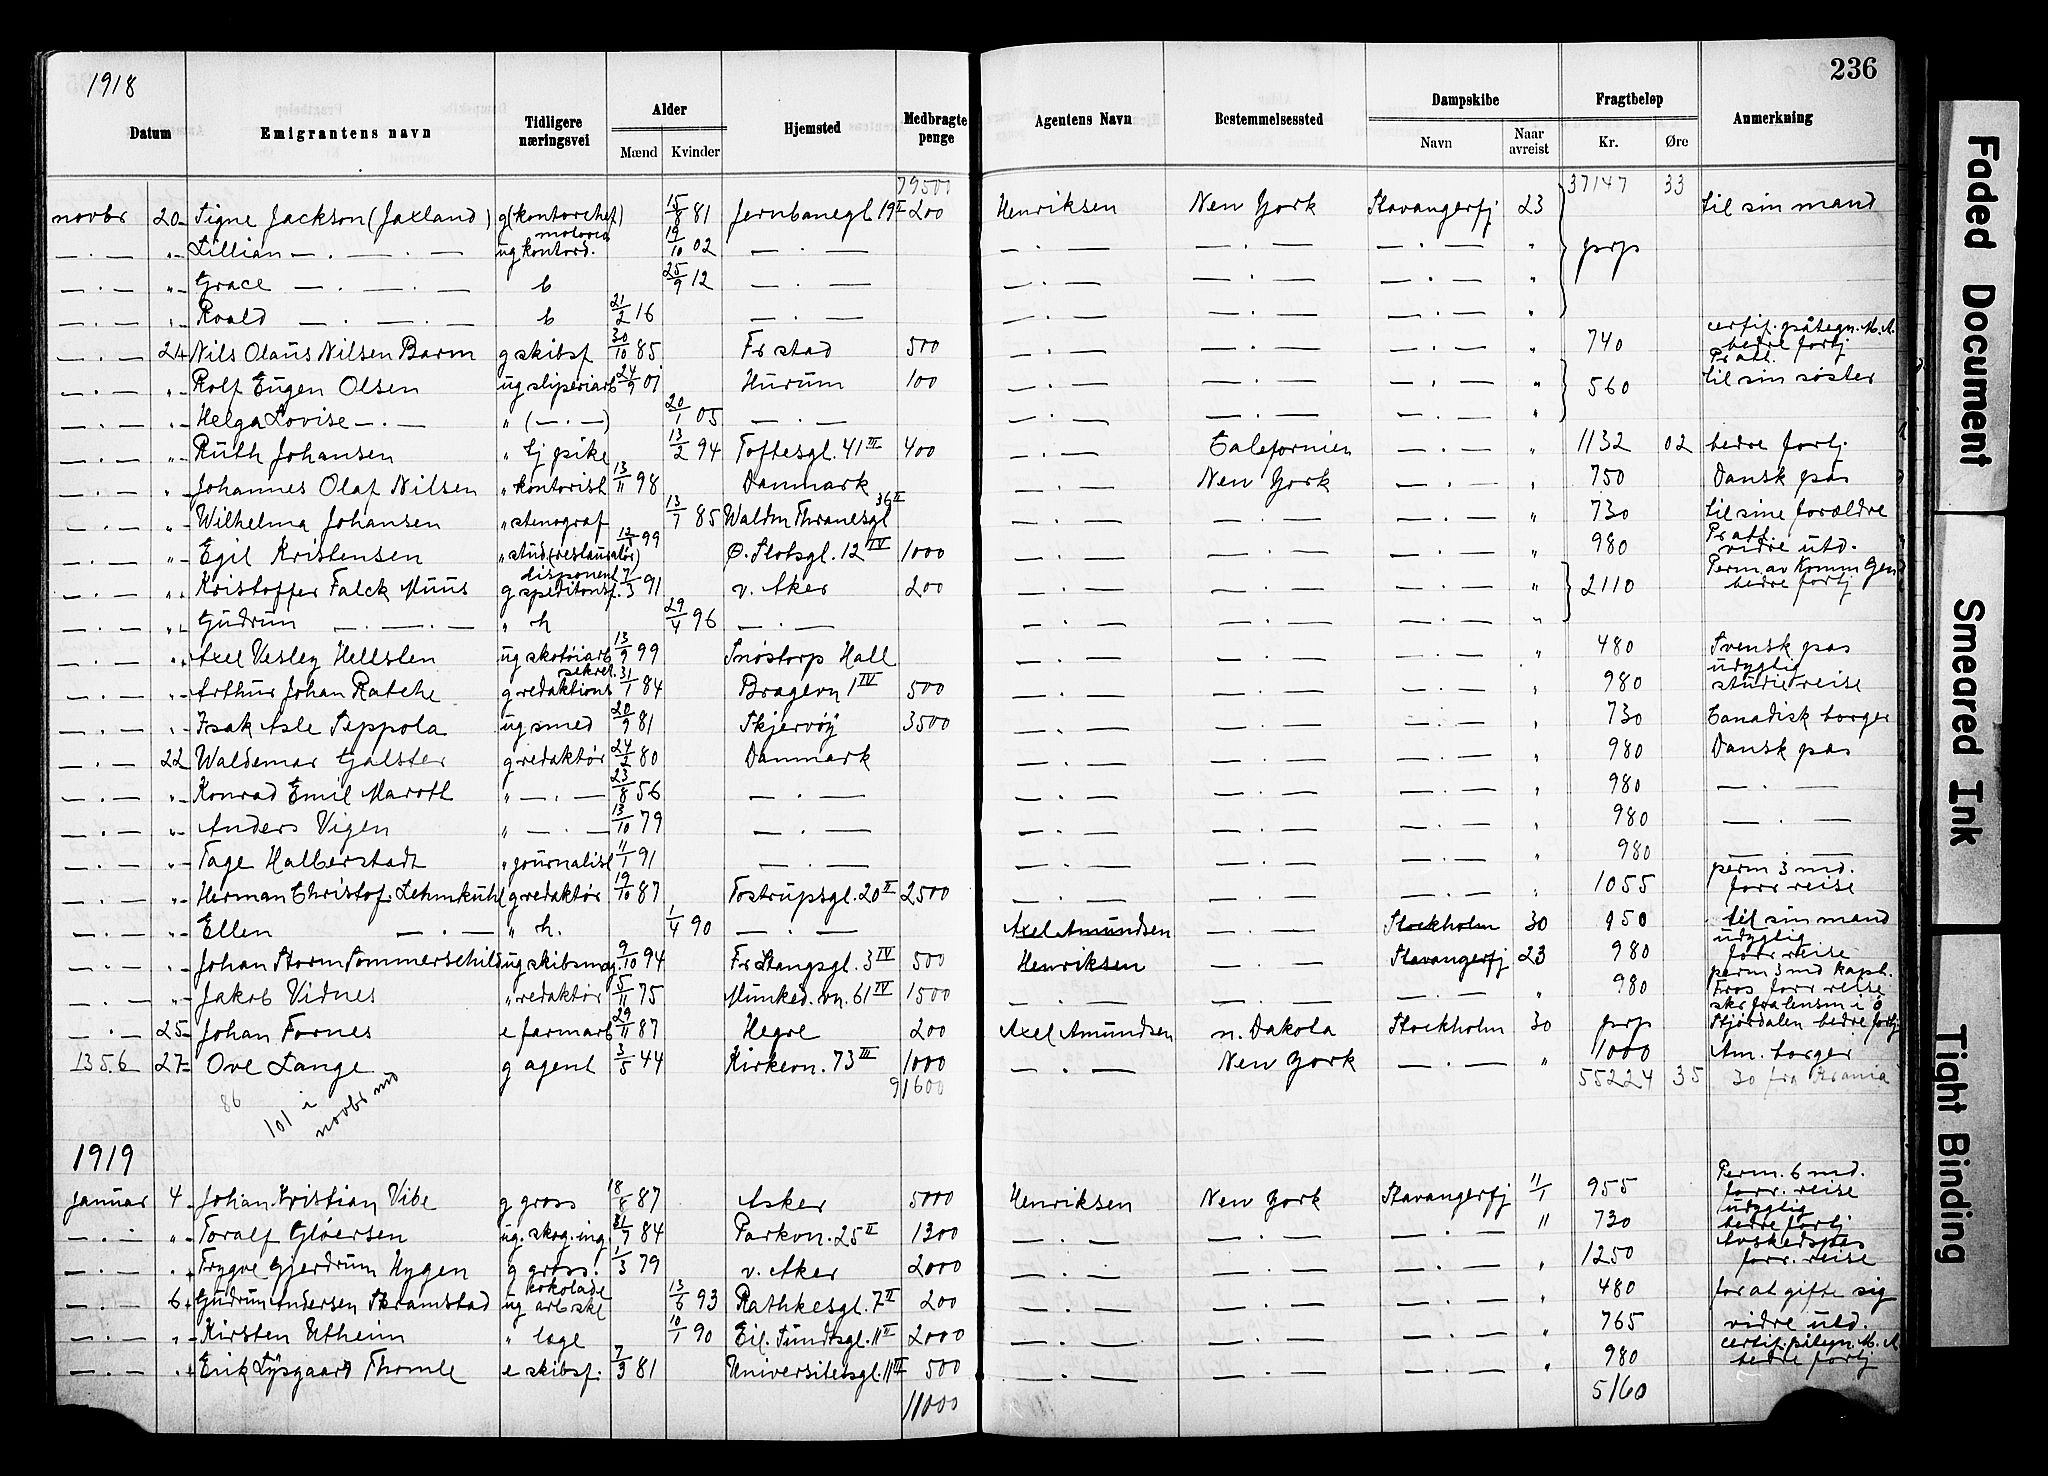 1918
236
Datum | Emigrantens navn | Tidligere næringsvei | Alder Mænd Kvinder | Hjemsted | Medbragte penge | Agentens Navn | Bestemmelsessted | Dampskibe Navn Naar avreist | Fragtbeløp Kr. Øre | Anmerkning
79500 | 37147 33
novbr 20 Signe Jackson (Jaxland) g (kontorchef) 15/8 81 Jernbanegt. 19 II 200 Henriksen New York Stavangerfj 23 til sin mand
— . — " Lillian — . — . — ug kontord. 19/10 02 — . — — . — — . — — . — " prp
— . — " Grace — . — . — b 25/9 12 — . — — . — — . — — . — "
— . — " Roald — . — . — b 21/2 16 — . — — . — — . — — . — "
— . — 21 Nils Olaus Nilsen Barm g skibsf 30/10 85 Fr stad 500 — . — — . — — . — " 740 certif. påtegn. M.A. bedre fortj
— . — " Rolf Eugen Olsen ug sliperiarb 24/9 01 Hurum 100 — . — — . — — . — " 560 Pratt. til sin søster
— . — " Helga Lovise — . — " ( — . — ) 20/1 05 — . — — . — — . — — . — "
— . — " Ruth Johansen " tj pike 13/2 94 Toftesgt. 41 III 400 — . — Californien — . — " 1132 02 bedre fortj.
— . — " Johannes Olaf Nilsen " kontorist 13/11 98 Danmark — . — New York — . — " 750 Dansk pas
— . — " Wilhelma Johansen " stenograf 13/7 85 Waldm Thranesgt 36 II — . — — . — — . — " 730 til sine forældre
— . — " Egil Kristensen " stud (restauratør) 99 Ø. Slotsgt. 12 IV 1000 — . — — . — — . — " 980 Pratt. vidre utd.
— . — " Kristoffer Falck Muus disponent g speditonsf. 7/3 91 v. Aker 200 — . — — . — — . — " 2110 Perm av Komm Gen bedre fortj
— . — " Gudrun — . — . — " h 29/4 96 — . — — . — — . — — . — "
— . — " Axel Vesley Hellsten ug skotøiarb 13/9 99 Snøstorp Hall — . — — . — — . — " 480 Svensk pas
— . — " Arthur Johan Ratche g redaktions sekret. 31/1 84 Bragevn 1 IV 500 — . — — . — — . — 980 udygtig studiereise
— . — " Isak Asle Seppola ug smed 20/9 81 Skjervøy 3500 — . — — . — — . — " 730 Canadisk borger
— . — 22 Waldemar Galster g redaktør 24/2 80 Danmark — . — — . — — . — " 980 Dansk pas
— . — " Konrad Emil Maroth " — . — 23/8 56 — . — — . — — . — — . — " 980 — . —
— . — " Anders Vigen " — . — 13/10 79 — . — — . — — . — — . — " 980 — . —
— . — " Tage Halberstadt " journalist 11/1 91 — . — — . — — . — — . — " 980 — . —
— . — " Herman Christof. Lehmkuhl g redaktør 19/10 87 Tostrupsgt. 20 II 2500 — . — — . — — . — " 1055 perm 3 md. forr reise
— . — " Ellen — . — " h. 1/4 90 — . — Axel Amundsen — . — Stockholm 30 950 til sin mand
— . — " Johan Storm Sommerschild ug skibsmeg. 9/10 94 Fr Stangsgt. 3 IV 500 Henriksen — . — Stavangerfj 23 980 udygtig forr reise
— . — " Jakob Vidnes " redaktør 5/11 75 Munked. vn. 61 IV 1500 — . — — . — — . — " 980 perm 3 md kapt. Fros forr reise
— . — 25 Johan Fornes e farmarb 29/11 87 Hegre 200 Axel Amundsen n. Dakota Stockholm 30 prp skr fra lensm i Ø Stjørdalen bedre fortj
1356 27 Ove Lange g agent 3/5 44 Kirkevn. 73 III 1000 — . — New York — . — " 1000 Am. borger
91600 | 55224 35 | 30 fra Krania
86 101 i novbr md
1919
januar 4 Johan Kristian Vibe g gross 18/8 87 Asker 5000 Henriksen New York Stavangerfj 11/1 955 Perm. 6 md. forr. reise
— . — " Toralf Gløersen ug. skog. ing. 21/7 84 Parkvn. 25 II 1300 — . — — . — — . — " 730 udygtig bedre fortj
— . — " Trygve Gjerdrum Nygen g gross. 1/3 79 v. Aker 2000 — . — — . — — . — " 1250 Avskedspas forr. reise
— . — 6 Gudrun Andersen Skramstad ug kokolade arbske 13/6 93 Rathkesgt. 7 II 200 — . — — . — — . — " 480 for at gifte sig
— . — " Kirsten Utheim " læge 10/1 90 Eil. Sundtsgt. 11 II 2000 — . — — . — — . — " 765 vidre utd.
— . — " Erik Lysgaard Thomle e skibsf. 7/3 81 Universitetsgt. 11 III 500 — . — — . — — . — " 980 certif. påtegn. M.A bedre fortj
11000 | 5160
Faded Document
Smeared Ink
Tight Binding